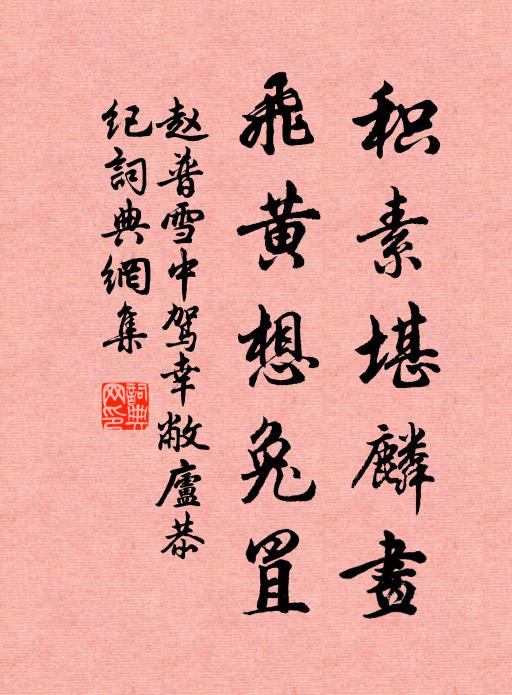 积素堪麟畫
飛黄想兔罝
赵普雪中駕幸敝廬恭
纪詞典網集
詞典网印